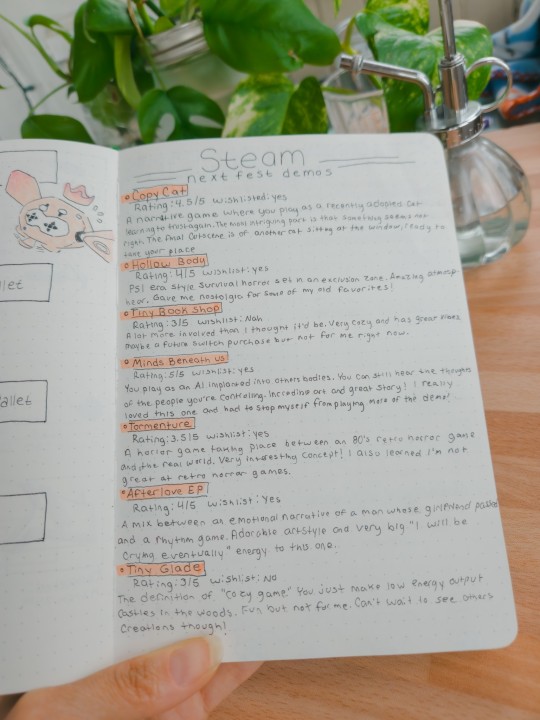 Steam
next fest demos
Copy Cat
Rating: 4.5/5 wishlisted: yes
A narrative game where you play as a recently adopted cat
learning to trust again. The most intriguing part is that something seems not
right. The final cutscene is of another cat sitting at the window, ready to
take your place
Hollow Body
Rating: 4/5 wishlist: yes
PS1 era style survival horror set in an exclusion zone. Amazing atmosp-
hear. Gave me nostalgic for some of my old favorites!
Tiny Book Shop
Rating: 3/5 wishlist: Nah
A lot more involved than I thought it'd be. Very cozy and has great vibes
maybe a future switch purchase but not for me right now.
Minds Beneath us
Rating: 5/5 wishlist: yes
You play as an AI implanted into others bodies. You can still hear the thoughts
of the people you're controling. Incredible art and great story! I really
loved this one and had to stop myself from playing more of the demo!
Tormenture
Rating: 3.5/5 wishlist: yes
A horror game taking place between an 80's retro horror game
and the real world. Very interesting concept! I also learned I'm not
great at retro horror games.
Afterlove EP
Rating: 4/5 wishlist: Yes
A mix between an emotional narrative of a man whose girlfriend passed
and a rhythm game. Adorable artstyle and very big "I will be
crying eventually" energy to this one.
Tiny Glade
Rating: 3/5 wishlist: No
The definition of "cozy game." You just make low energy output
castles in the woods. Fun but not for me. Can't wait to see others
creations though!
llet
allet